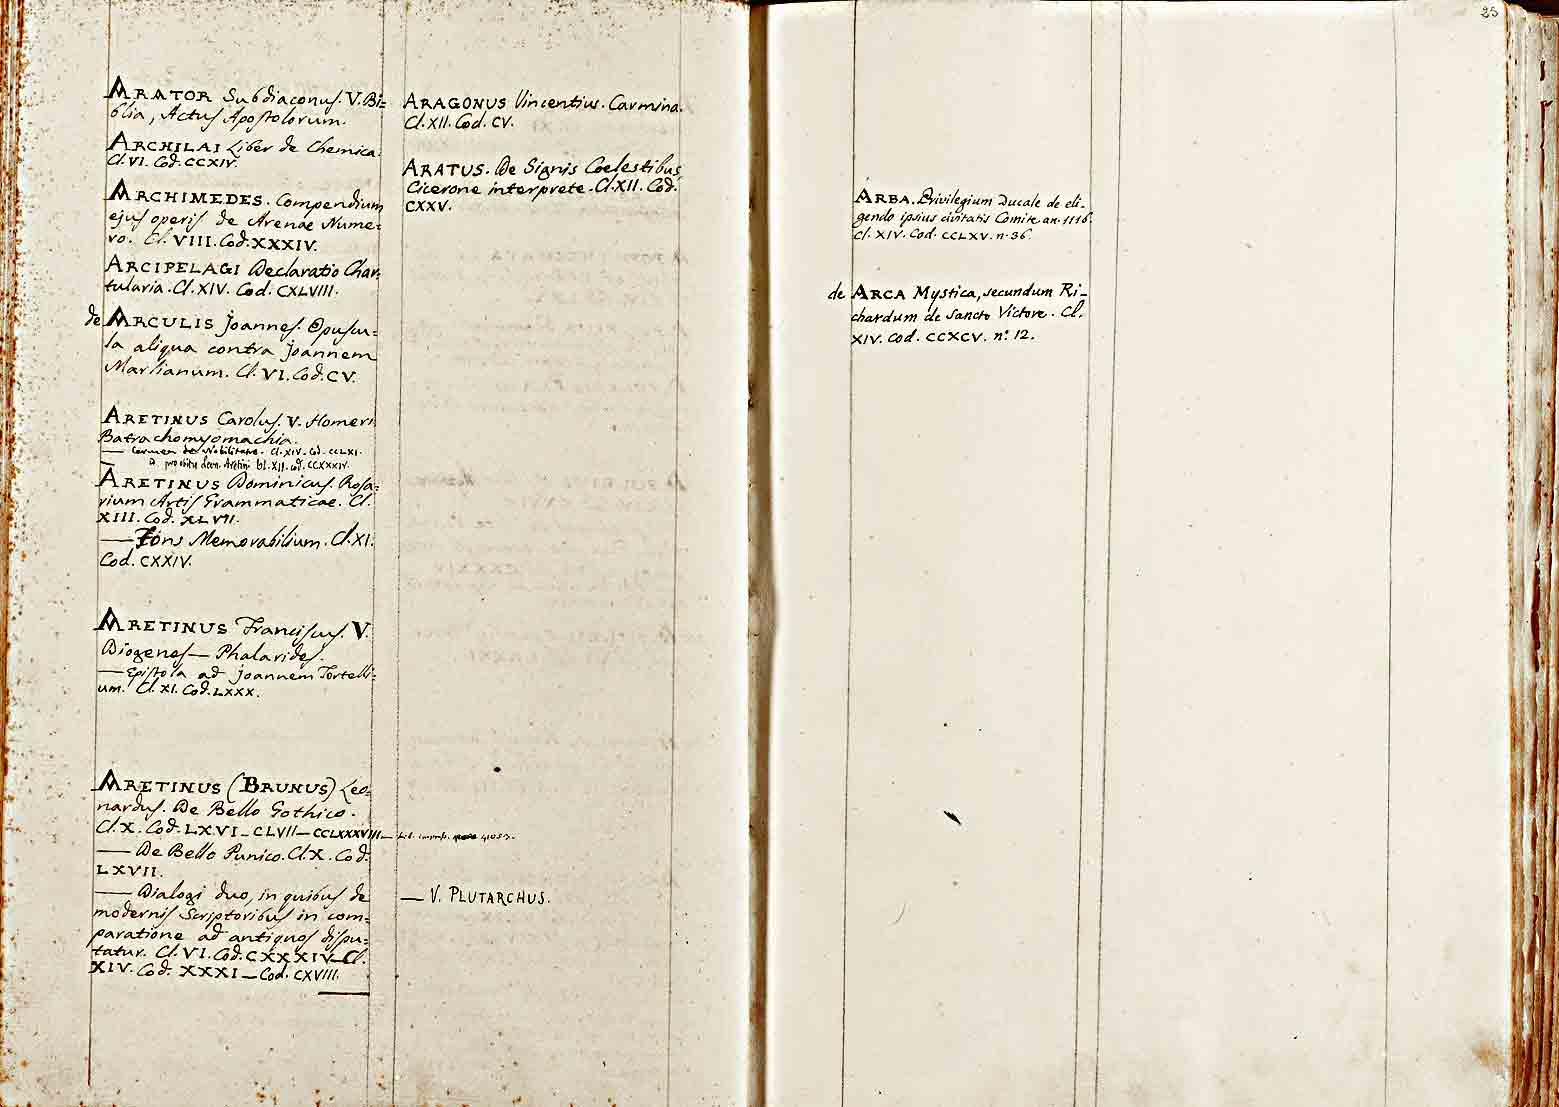 25
ARATOR Subdiaconus. V. Bi=
blia, Actus Apostolorum.
ARCHILAI Liber de Chemica.
Cl. VI. Cod. CCXIV.
ARCHIMEDES. Compendium
ejus operis de Arenae Nume=
ro. Cl. VIII. Cod. XXXIV.
ARCIPELAGI Declaratio Char=
tularia. Cl. XIV. Cod. CXLVIII.
de ARCULIS Joannes. Opuscu=
la aliqua contra Joannem
Marlianum. Cl. VI. Cod. CV.
ARETINUS Carolus. V. Homeri
Batrachomyomachia.
— Carmen de Nobilitate. Cl. XIV. Cod. CCLXI.
— pro obitu Leon. Aretini Cl. XII. cod. CCXXXIV.
ARETINUS Dominicus. Rosa=
rium Artis Grammaticae. Cl.
XIII. Cod. XLVII.
— Fons Memorabilium. Cl. XI.
Cod. CXXIV.
ARETINUS Franciscus. V.
Diogenes — Phalarides.
— Epistola ad Joannem Tortelli=
um. Cl. XI. Cod. LXXX.
ARETINUS (BRUNUS) Leo=
nardus. De Bello Gothico.
Cl. X. Cod. LXVI — CLVII — CCLXXXVIII —
— De Bello Punico. Cl. X. Cod.
LXVII.
— Dialogi duo, in quibus de
modernis Scriptoribus in com=
paratione ad antiquos dispu=
tatur. Cl. VI. Cod. CXXXIV — Cl.
XIV. Cod. XXXI — Cod. CXVIII.
ARAGONUS Vincentius. Carmina.
Cl. XII. Cod. CV.
ARATUS. De Signis Coelestibus,
Cicerone interprete. Cl. XII. Cod.
CXXV.
— V. PLUTARCHUS.
ARBA. Privilegium Ducale de eli-
gendo ipsius civitatis Comite an. 1116.
Cl. XIV. Cod. CCLXV. n. 36.
de ARCA Mystica, secundum Ri-
chardum de Sancto Victore. Cl.
XIV. Cod. CCXCV. nº 12.